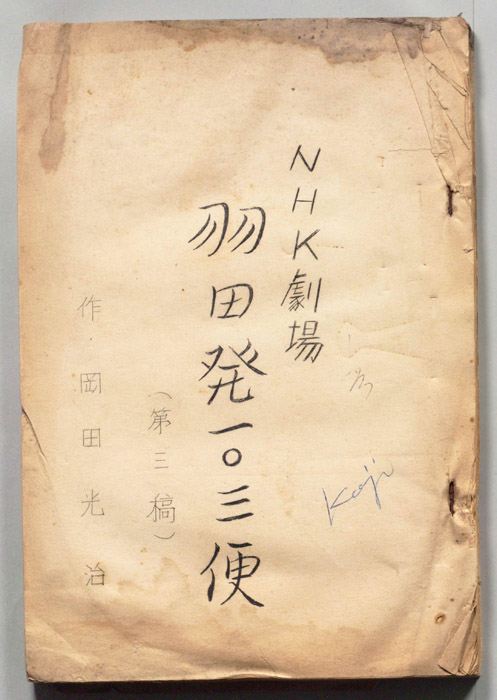 NHK劇場
羽田発一〇三便
(第三稿)
作・岡田光治
Koji